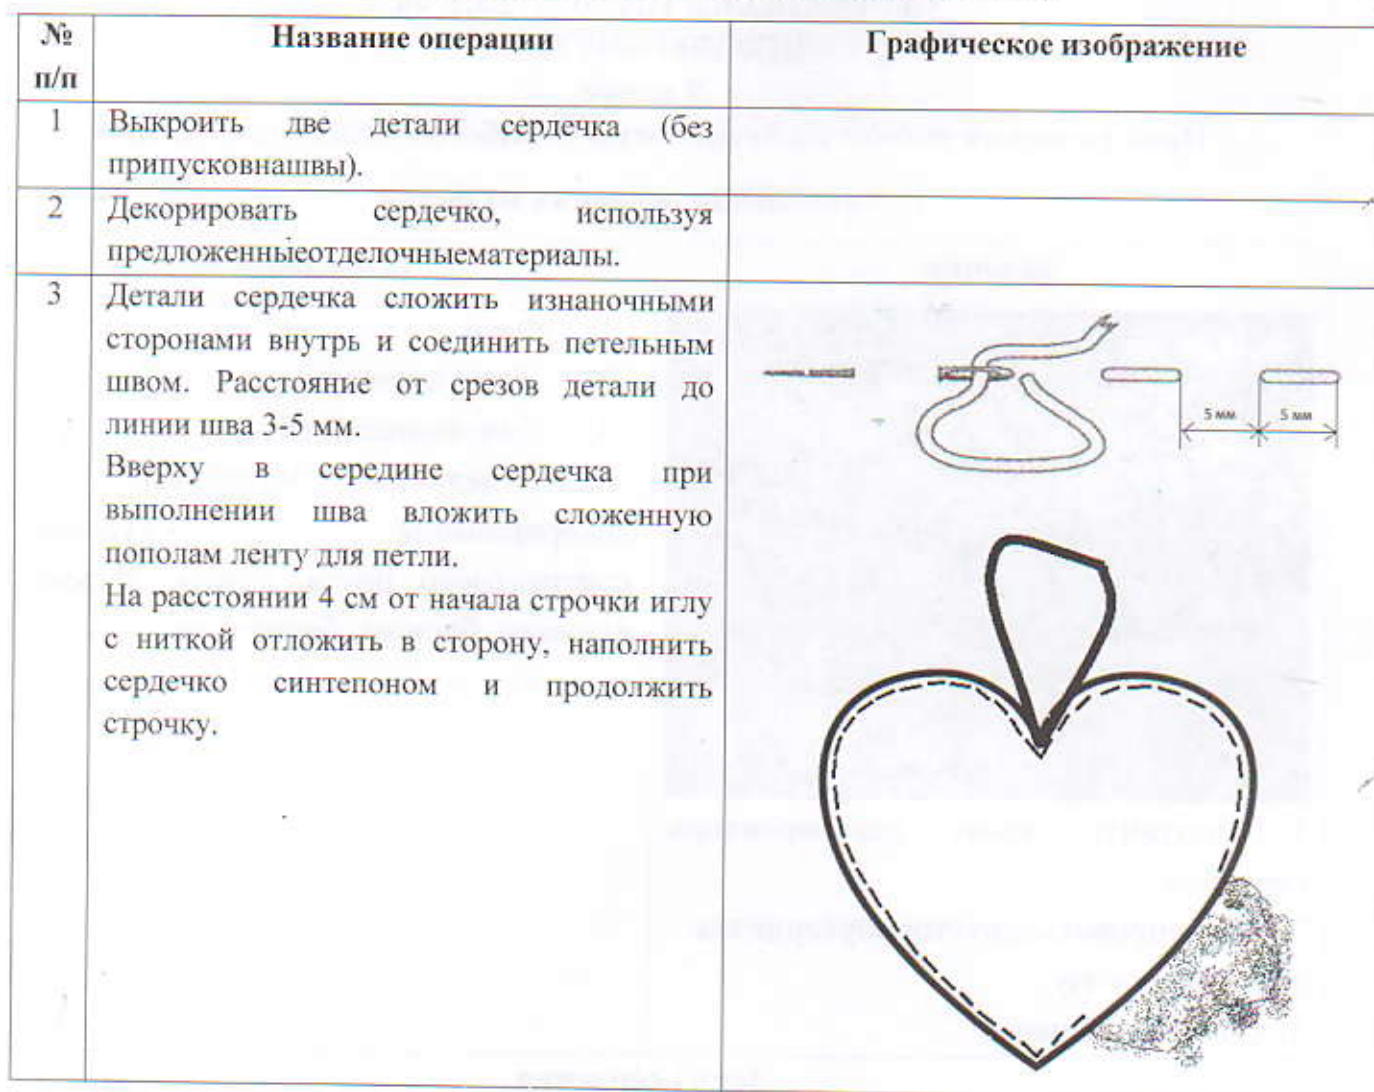 № п/п
Название операции
Графическое изображение
1
Выкроить две детали сердечка (без
припусковнашвы).
2
Декорировать сердечко, используя
предложенныеотделочныематериалы.
3
Детали сердечка сложить изнаночными
сторонами внутрь и соединить петельным
швом. Расстояние от срезов детали до
линии шва 3-5 мм.
Вверху в середине сердечка при
выполнении шва вложить сложенную
пополам ленту для петли.
На расстоянии 4 см от начала строчки иглу
с ниткой отложить в сторону, наполнить
сердечко синтепоном и продолжить
строчку.
5 мм 5 мм